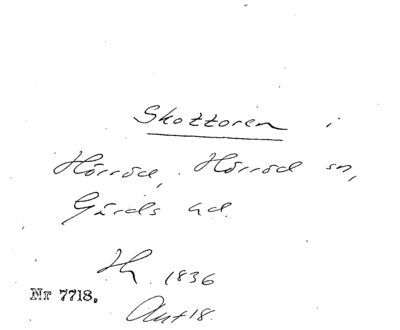 Skottoren i
Hörröd, Hörröd sn,
Gärds hd.
Hy 1836
Nr 7718.
Ant 18.